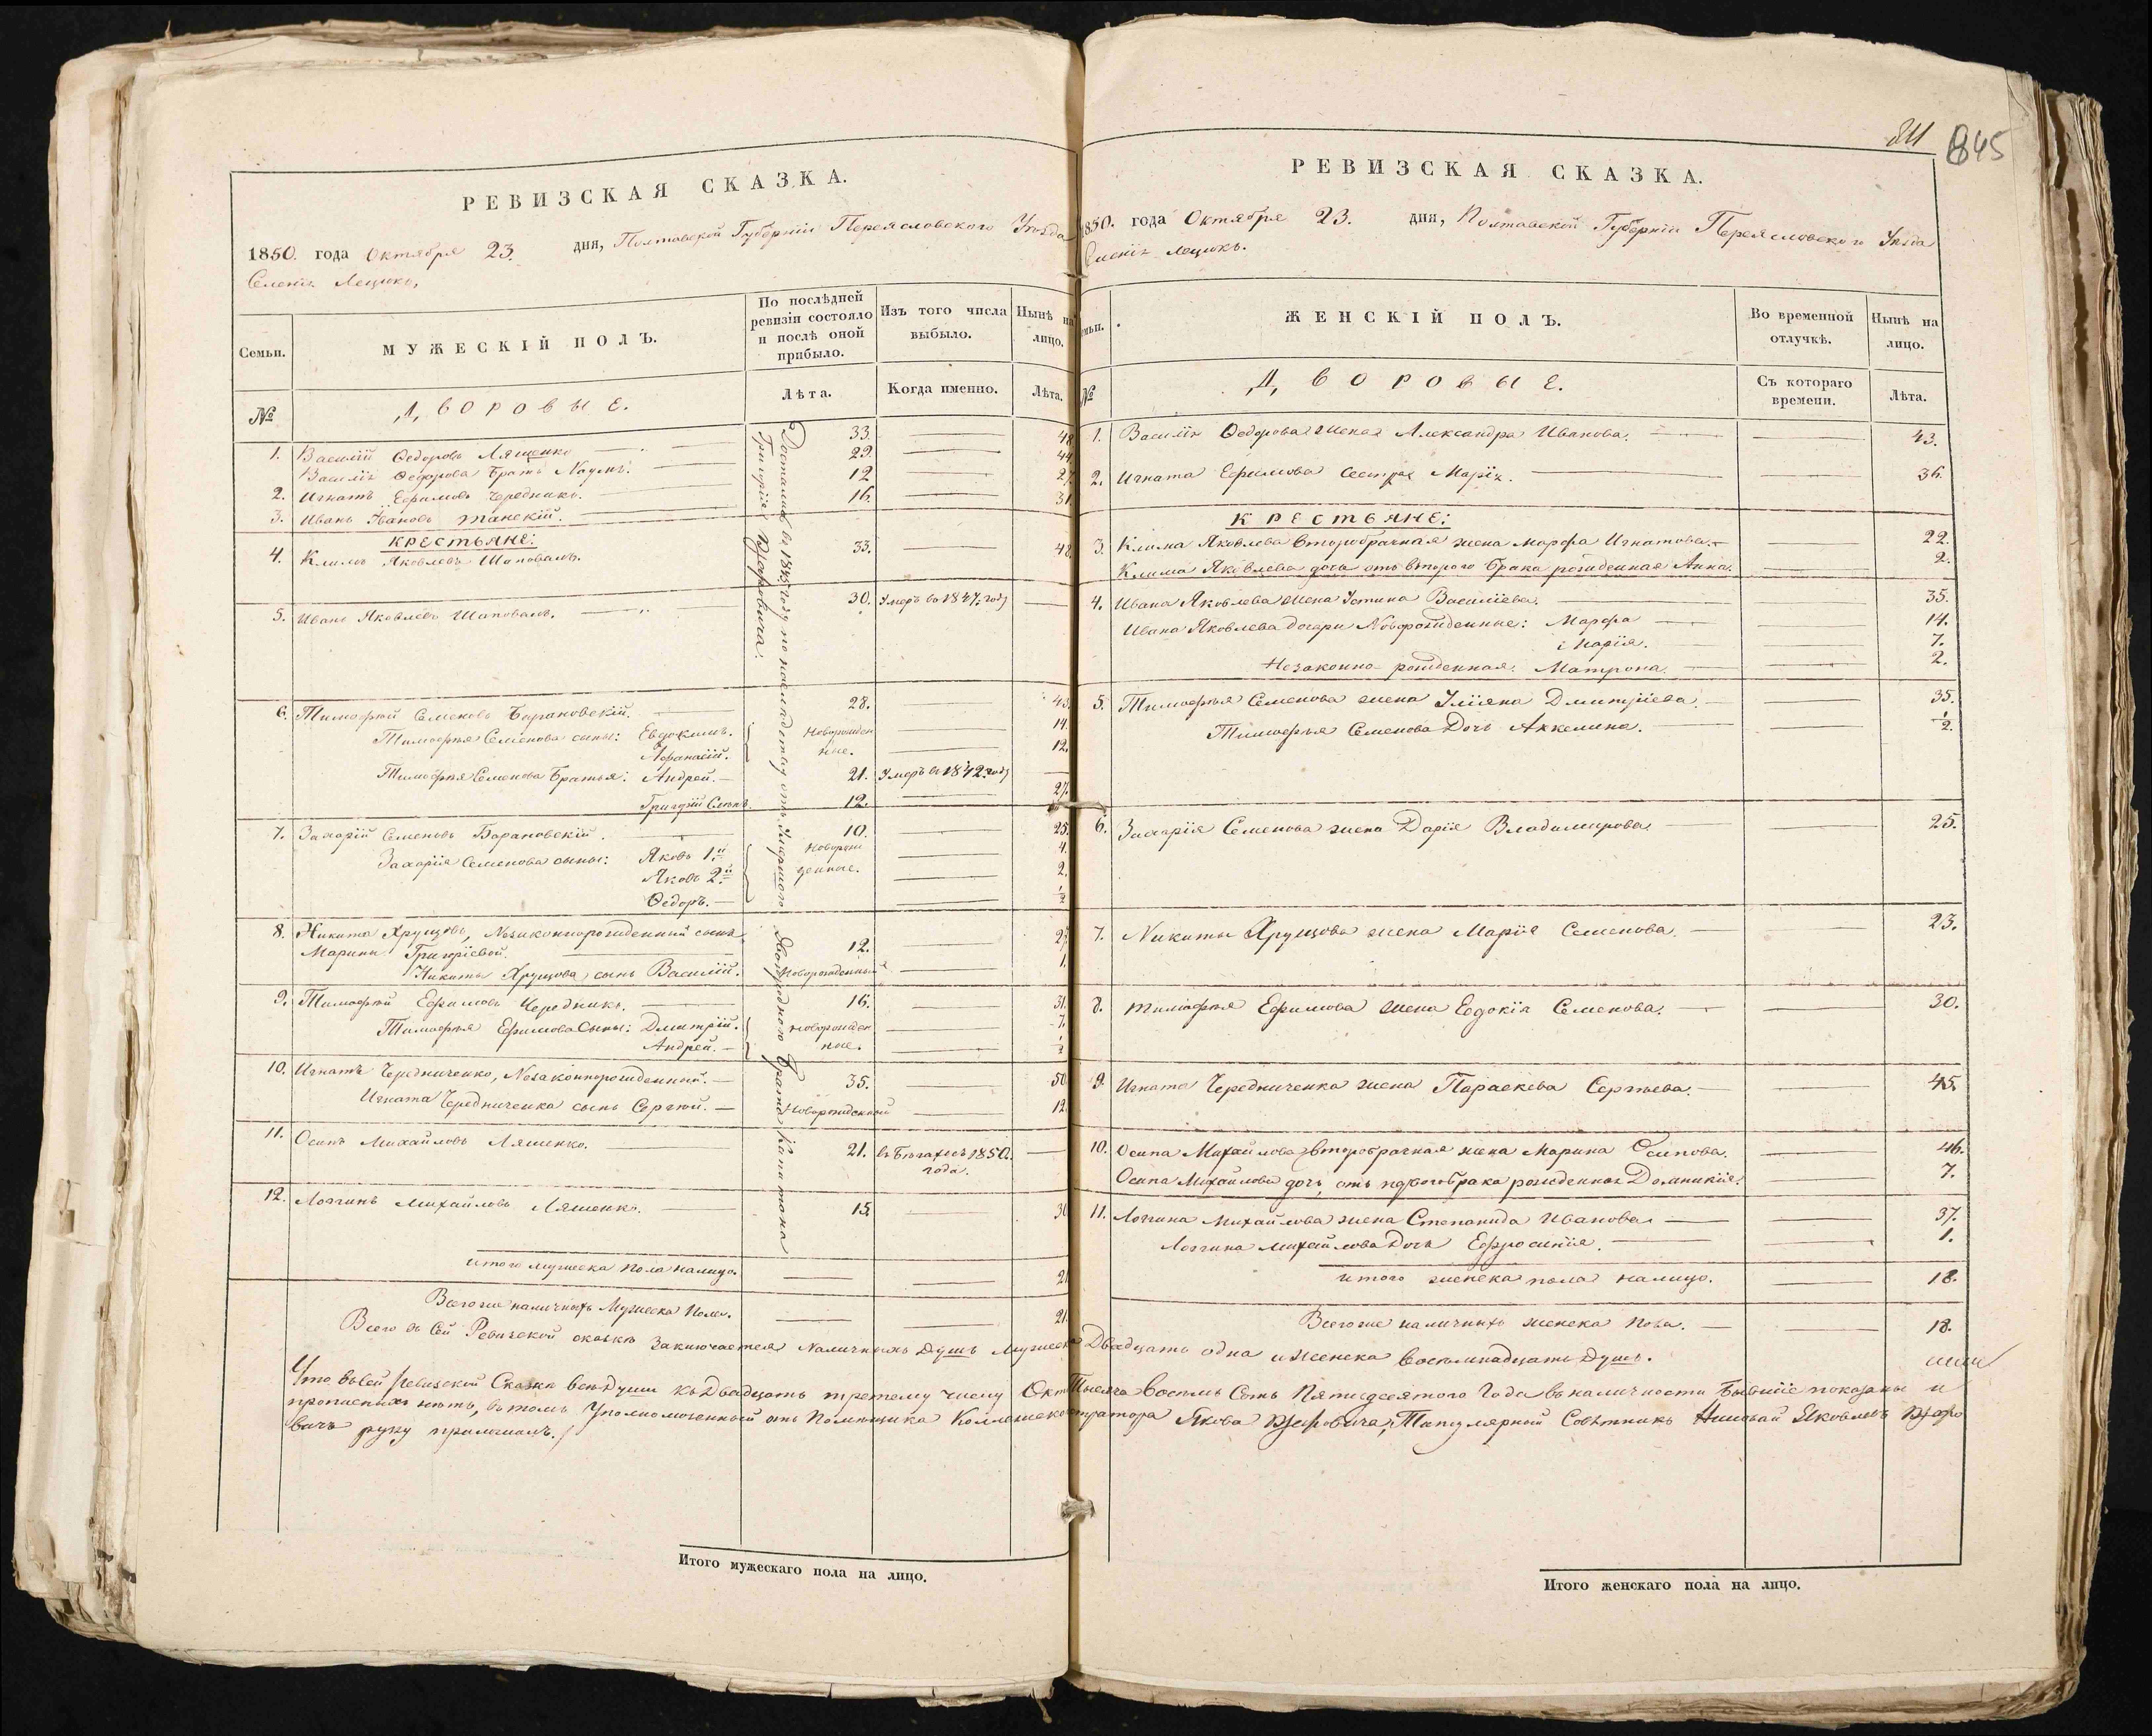 РЕВИЗСКАЯ СКАЗКА.
1850. года Октября 23. дня, Полтавской Губерніи Переясловского Уѣзда
Селенія Лецокъ,
Семьи.
МУЖЕСКІЙ ПОЛЪ.
По послѣдней ревизіи состояло и послѣ оной прибыло.
Изъ того числа выбыло.
Нынѣ на лицо.
№
Дворовые.
Лѣта.
Когда именно.
Лѣта.
1. Василій Ѳедоровъ Ляшенко — 33. — 48
Василія Ѳедорова братъ Наумъ. — 29. — 44
2. Игнатъ Ефимовъ Чередникъ. — 12 — 27
3. Иванъ Ивановъ Танскій. — 16. — 31.
КРЕСТЬЯНЕ:
4. Климъ Яковлевъ Шаповалъ. 33. — 48
5. Иванъ Яковлевъ Шаповалъ. — 30. Умеръ въ 1847. году —
6. Тимофѣй Семеновъ Барановскій. — 28. — 43.
Тимофѣя Семенова сыны: Евдокимъ. Новорожден — 14
Афанасій. ные. — 12.
Тимофѣя Семенова Братья: Андрей. — 21. Умеръ въ 1842. году —
Григорій 12. — 27.
7. Захарій Семеновъ Барановскій. — 10. — 25.
Захарія Семенова сыны: Яковъ 1.й Новорож — 4.
Яковъ 2.й денные. — 2.
Ѳедоръ. — — 1/2
8. Никита Хрущовъ, Незаконнорожденный сынъ
Марины Григорієвой. — 12. — 27
Никиты Хрущова сынъ Василій. Новорожденный — 1.
9. Тимофѣй Ефимовъ Чередникъ. — 16. — 31.
Тимофѣя Ефимова Сыны: Дмитрій. Новорожден — 7.
Андрей. — ные. — 1/2
10. Игнатъ Чередниченко, Незаконнорожденный. — 35. — 50
Игната Чередниченка сынъ Сергѣй. — Новорожденный — 12.
11. Осипъ Михайловъ Ляшенко. — 21. въ Бѣгахъ съ 1850. —
года.
12. Логгинъ Михайловъ Ляшенко. — 15. — 30
Досталися въ 1845 году по наслѣдству отъ Умершого Двоюродного Брата Капитона
Григорія
Итого мужеска пола налицо. — — 21
Всегоже наличныхъ Мужеска Пола. — — 21.
РЕВИЗСКАЯ СКАЗКА.
84
845
1850. года Октября 23. дня, Полтавской Губерніи Переясловского Уѣзда
Селенія Лецокъ.
Семьи.
ЖЕНСКІЙ ПОЛЪ.
Во временной отлучкѣ.
Нынѣ на лицо.
№
Дворовые.
Съ котораго времени.
Лѣта.
1. Василія Ѳедорова жена Александра Иванова. — — 43.
2. Игната Ефимова сестра Марія. — — 36.
КРЕСТЬЯНЕ:
3. Клима Яковлева второбрачная жена Марфа Игнатова. — — 22.
Клима Яковлева дочь отъ второго брака рожденная Анна. — 2.
4. Ивана Яковлева жена Устина Василіева. — — 35.
Ивана Яковлева дочери Новорожденные: Марфа — — 14.
Марія. — — 7.
Незаконно-рожденная: Матрона. — — 2.
5. Тимофѣя Семенова жена Уліяна Дмитріева. — — 35.
Тимофѣя Семенова Дочь Аккелина. — — 1/2.
6. Захарія Семенова жена Дарія Владимирова. — — 25.
7. Никиты Хрущова жена Марія Семенова. — — 23.
8. Тимофѣя Ефимова жена Евдокія Семенова. — — 30.
9. Игната Чередниченка жена Параскева Сергѣева. — — 45.
10. Осипа Михайлова второбрачная жена Марина Осипова. — 46.
Осипа Михайлова дочь, отъ первого брака рожденная Домникія. — 7.
11. Логгина Михайлова жена Степанида Иванова — — 37.
Логгина Михайлова Дочь Ефросинія. — — 1.
Итого женска пола налицо. — 18.
Всегоже наличныхъ женска пола. — — 18.
Всего въ сей Ревизской сказкѣ Заключается Наличныхъ душъ Мужеска Двадцать одна и женска восемнадцать Душъ.
Что въ сей Ревизской Сказкѣ всѣ Души къ Двадцать третему числу Октября Тысяча Восемь Сотъ Пятидесятого Года въ наличности Бывшіе показаны и
прописныхъ нѣтъ, въ томъ Уполномоченный отъ Помѣщика Коллежского Регистратора Якова Титулярный Совѣтникъ Николай Яковлевъ
вичъ руку приложилъ.
Итого мужескаго пола на лицо.
Итого женскаго пола на лицо.